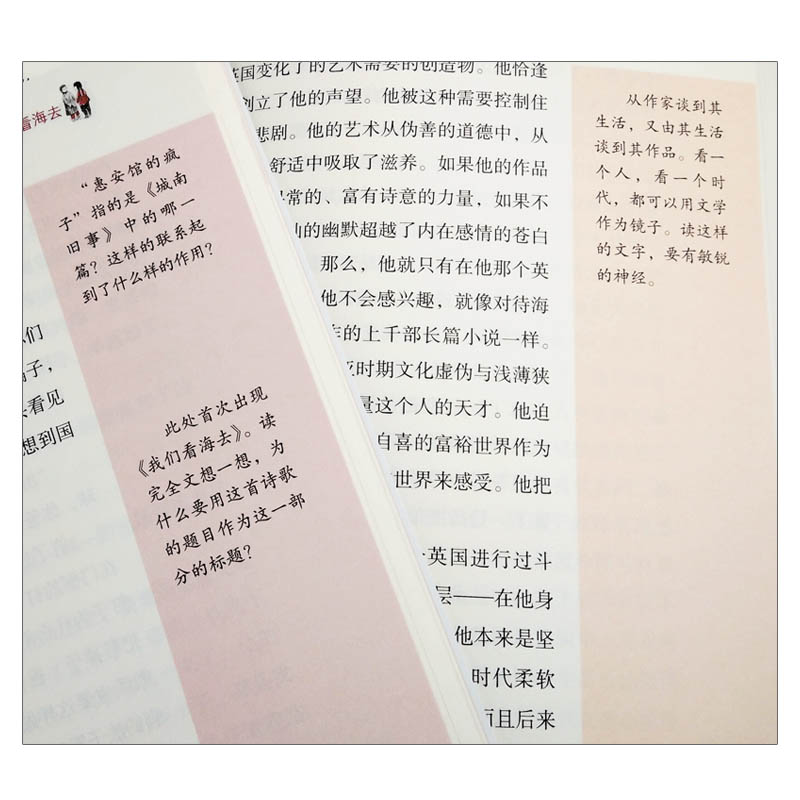 看海去
“惠安馆的疯
子”指的是《城南
旧事》中的哪一
篇？这样的联系起
到了什么样的作用？
我们
子，
看见
想到国
此处首次出现
《我们看海去》。读
完全文想一想，为
什么要用这首诗歌
的题目作为这一部
分的标题？
英国变化了的艺术需要的创造物。他恰逢
创立了他的声望。他被这种需要控制住
悲剧。他的艺术从伪善的道德中，从
舒适中吸取了滋养。如果他的作品
常的、富有诗意的力量，如果不
的幽默超越了内在感情的苍白
那么，他就只有在他那个英
他不会感兴趣，就像对待海
的上千部长篇小说一样。
时期文化虚伪与浅薄狭
量这个人的天才。他迫
自喜的富裕世界作为
世界来感受。他把
英国进行过斗
层——在他身
他本来是坚
时代柔软
而且后来
从作家谈到其
生活，又由其生活
谈到其作品。看一
个人，看一个时
代，都可以用文学
作为镜子。读这样
的文字，要有敏锐
的神经。